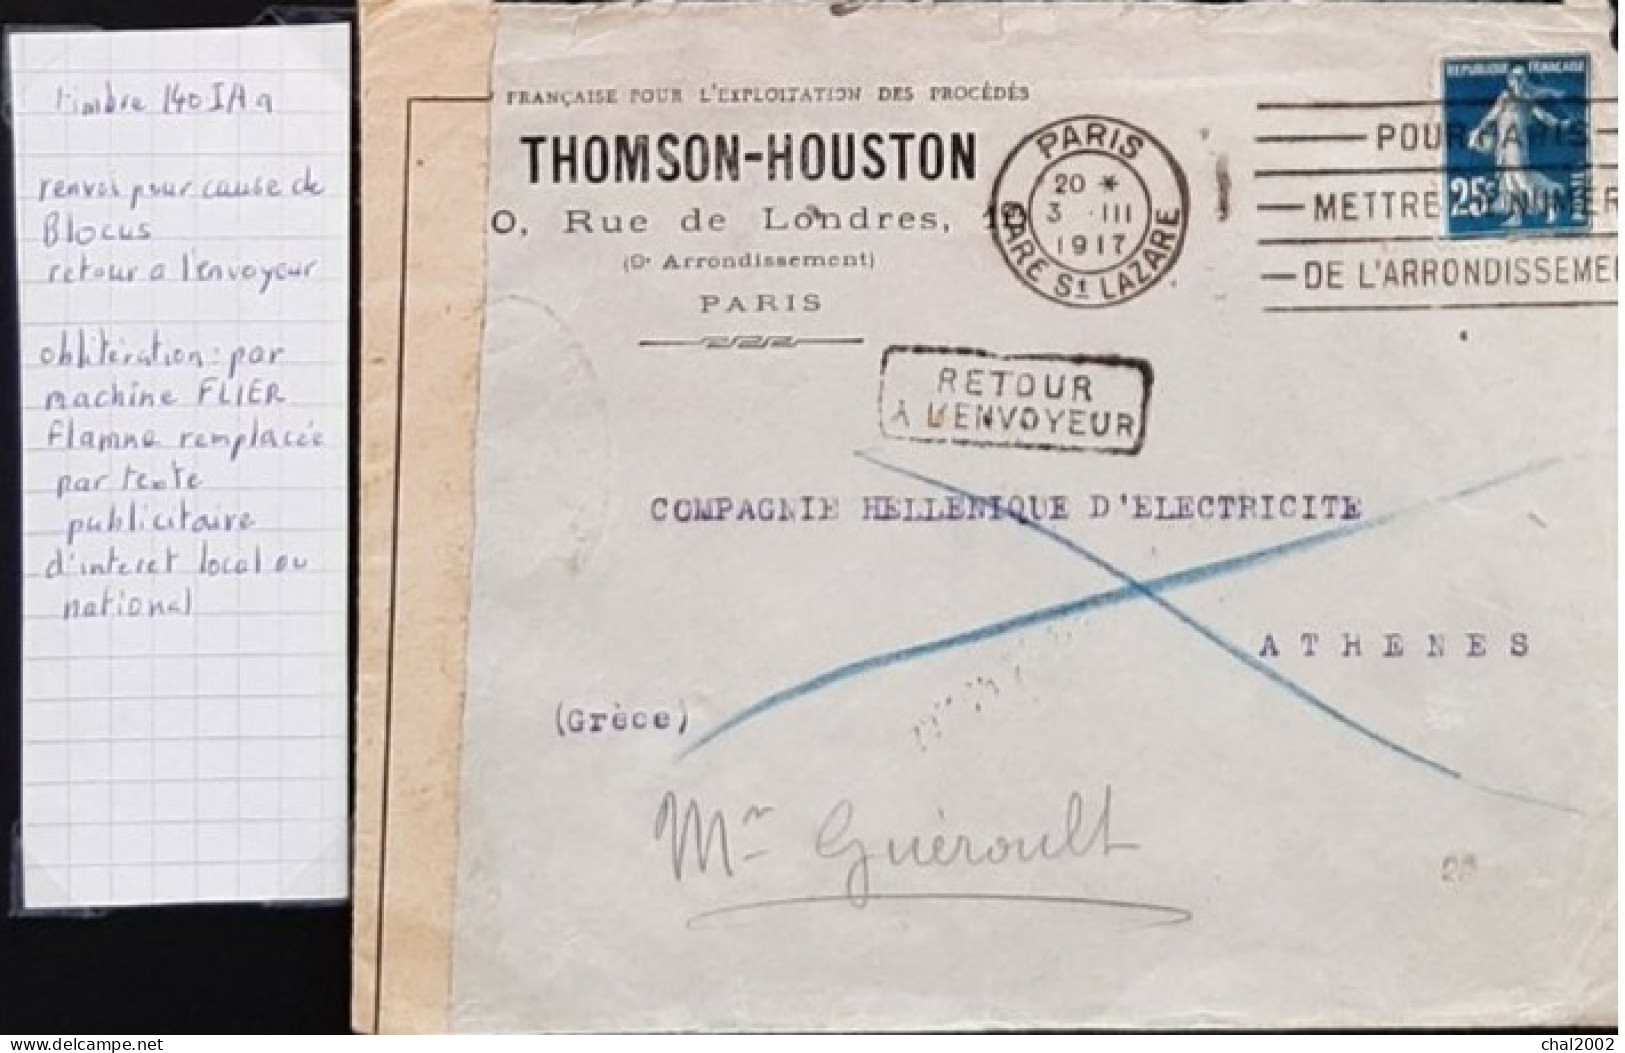 timbre 140 IA a
renvoi pour cause de
Blocus
retour a l'envoyeur
oblitération : par
machine FLIER
flamme remplacée
par texte
publicitaire
d'interet local ou
national
FRANÇAISE POUR L'EXPLOITATION DES PROCÉDÉS
THOMSON-HOUSTON
0, Rue de Londres, 10
(9e Arrondissement)
PARIS
PARIS
20 *
3 III
1917
GARE St LAZARE
POUR PARIS
METTRE LE NUMER
DE L'ARRONDISSEME
REPUBLIQUE FRANÇAISE
25c
RETOUR
À L'ENVOYEUR
COMPAGNIE HELLENIQUE D'ELECTRICITE
ATHENES
(Grèce)
Mr Guéroult
delcampe.net
chal2002